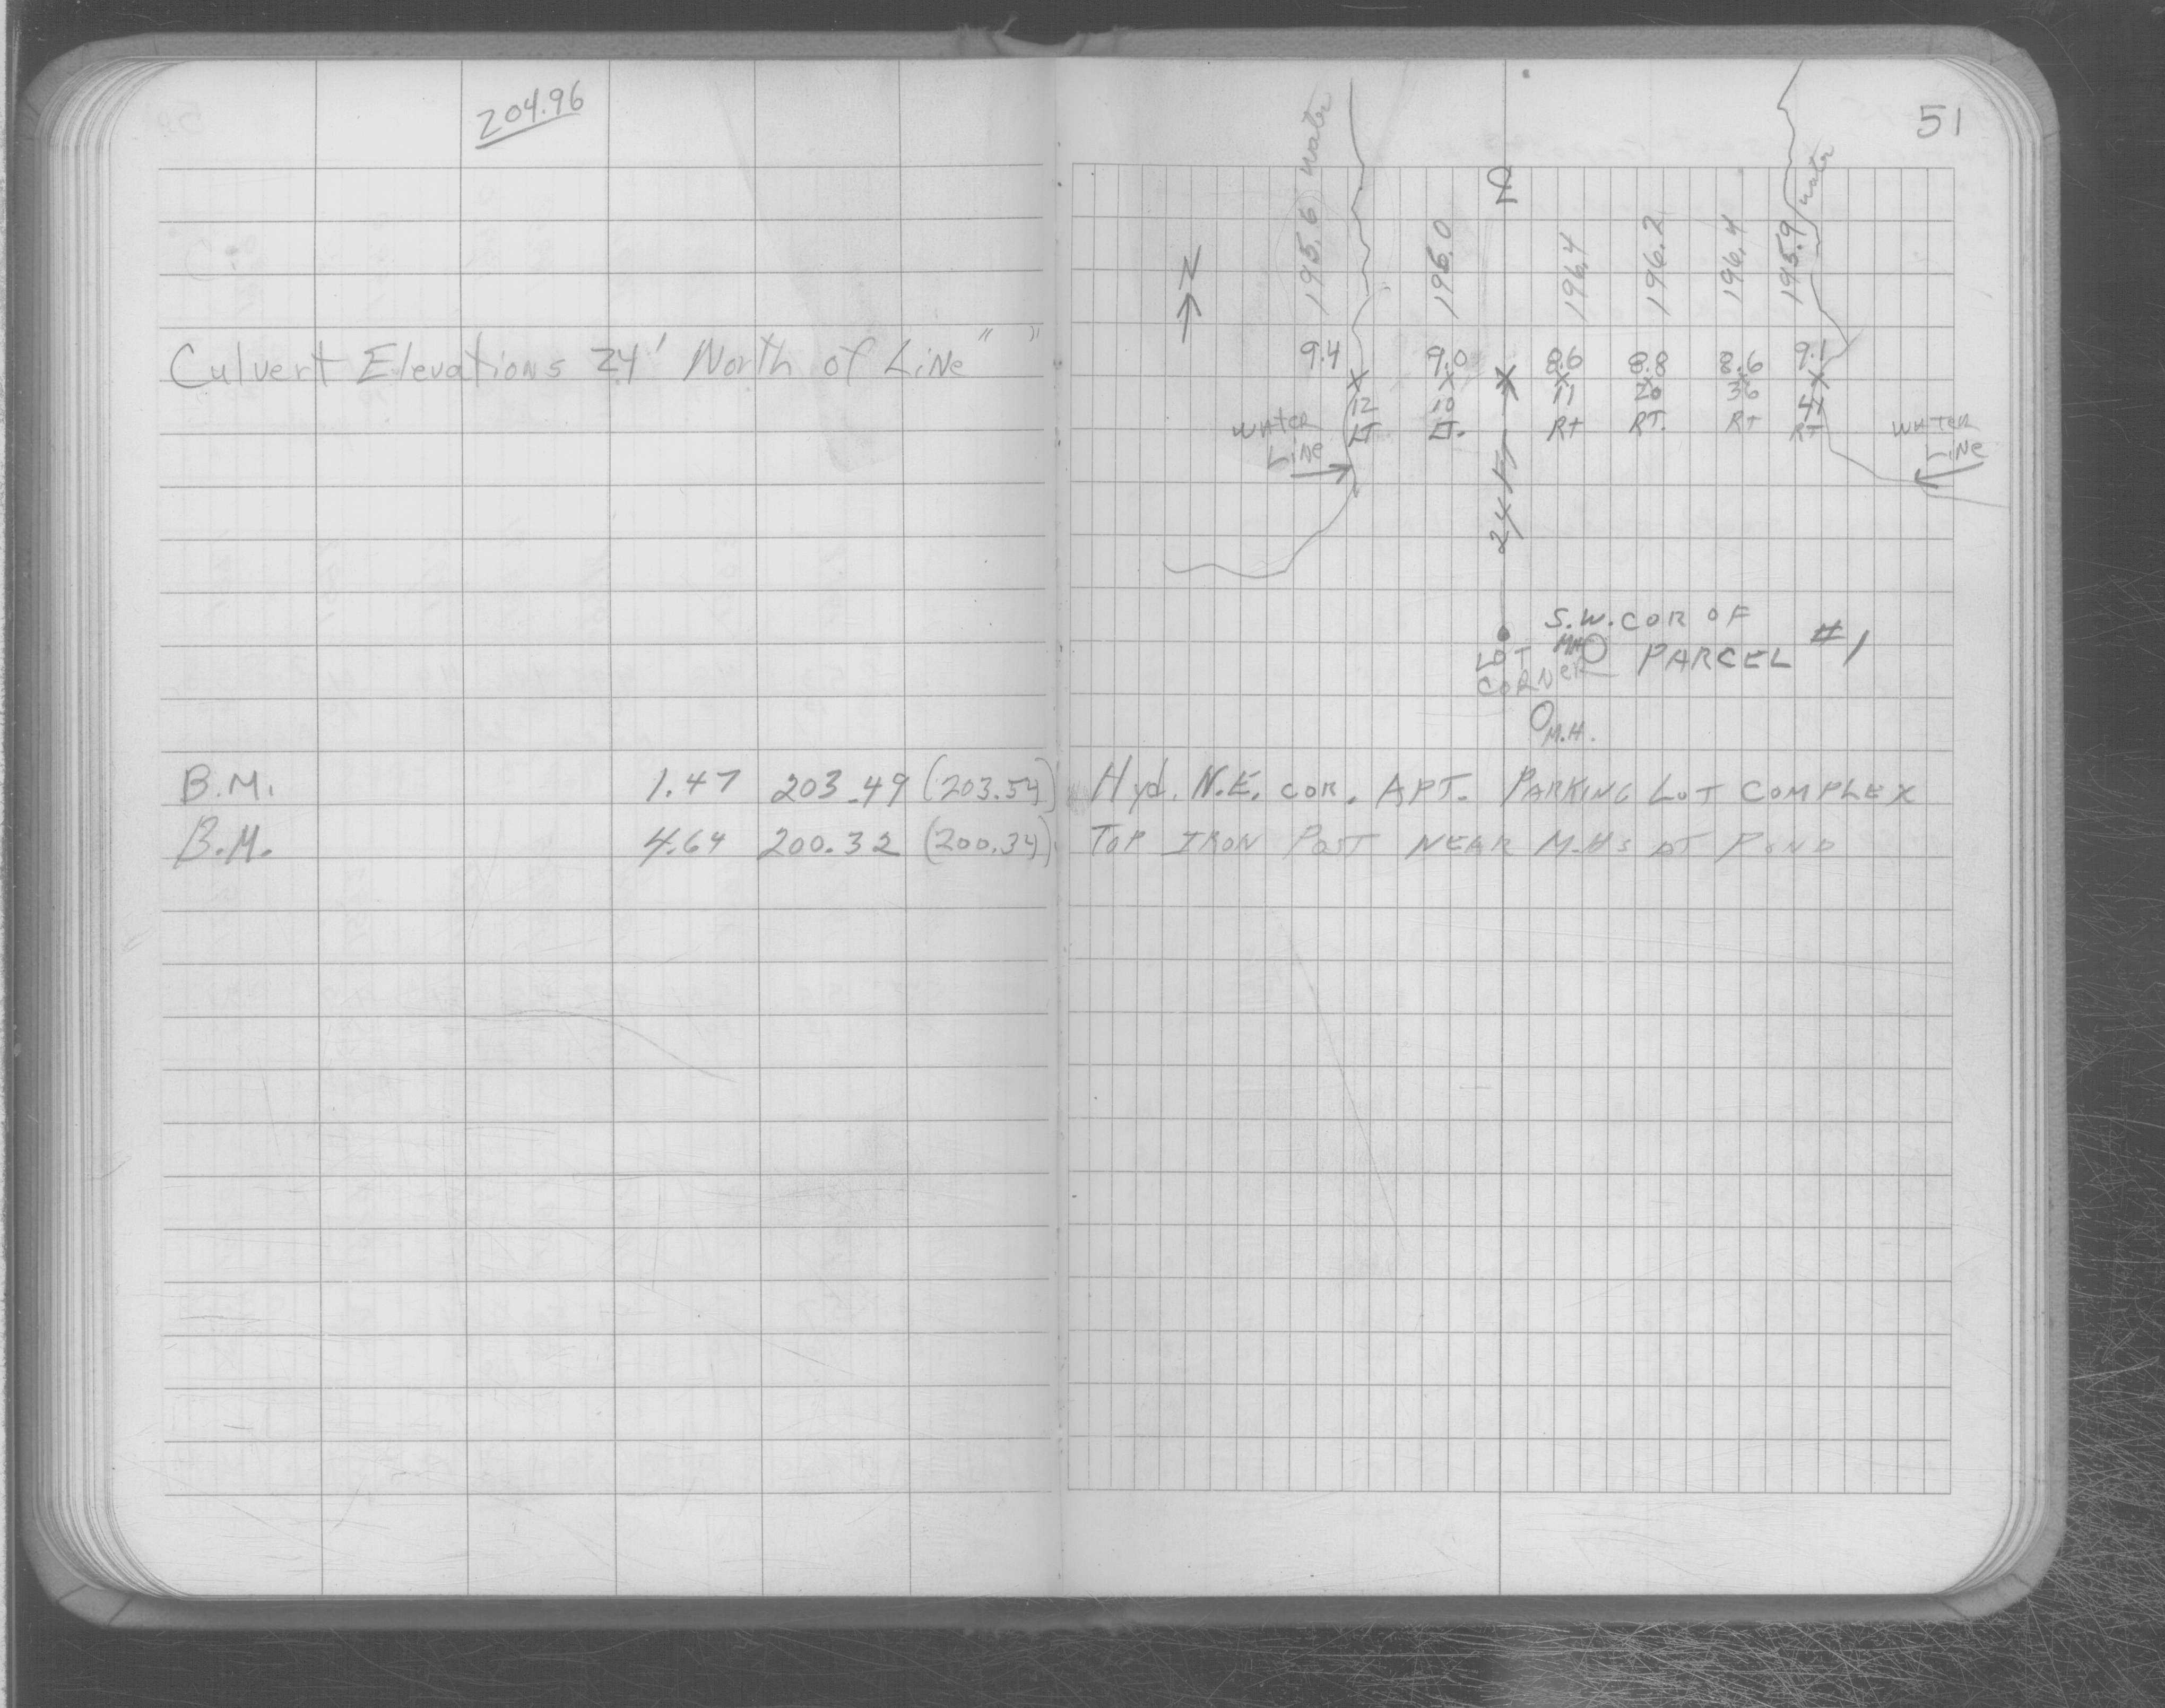 204.96
51
Culvert Elevations 24' North of Line " "
N
195.6 water
195.0
196.4
196.2
196.4
195.9 water
9.4 9.0 8.6 8.8 8.6 9.1
12 10 11 20 36 41
LT LT. RT RT. RT RT
WATER LINE
WATER LINE
24 FT
S.W. COR OF PARCEL #1
LOT CORNER
MH
M.H.
B.M. 1.47 203.49 (203.54) Hyd. N.E. COR. APT. PARKING LOT COMPLEX
B.M. 4.64 200.32 (200.34) TOP IRON POST NEAR M.H.s AT POND